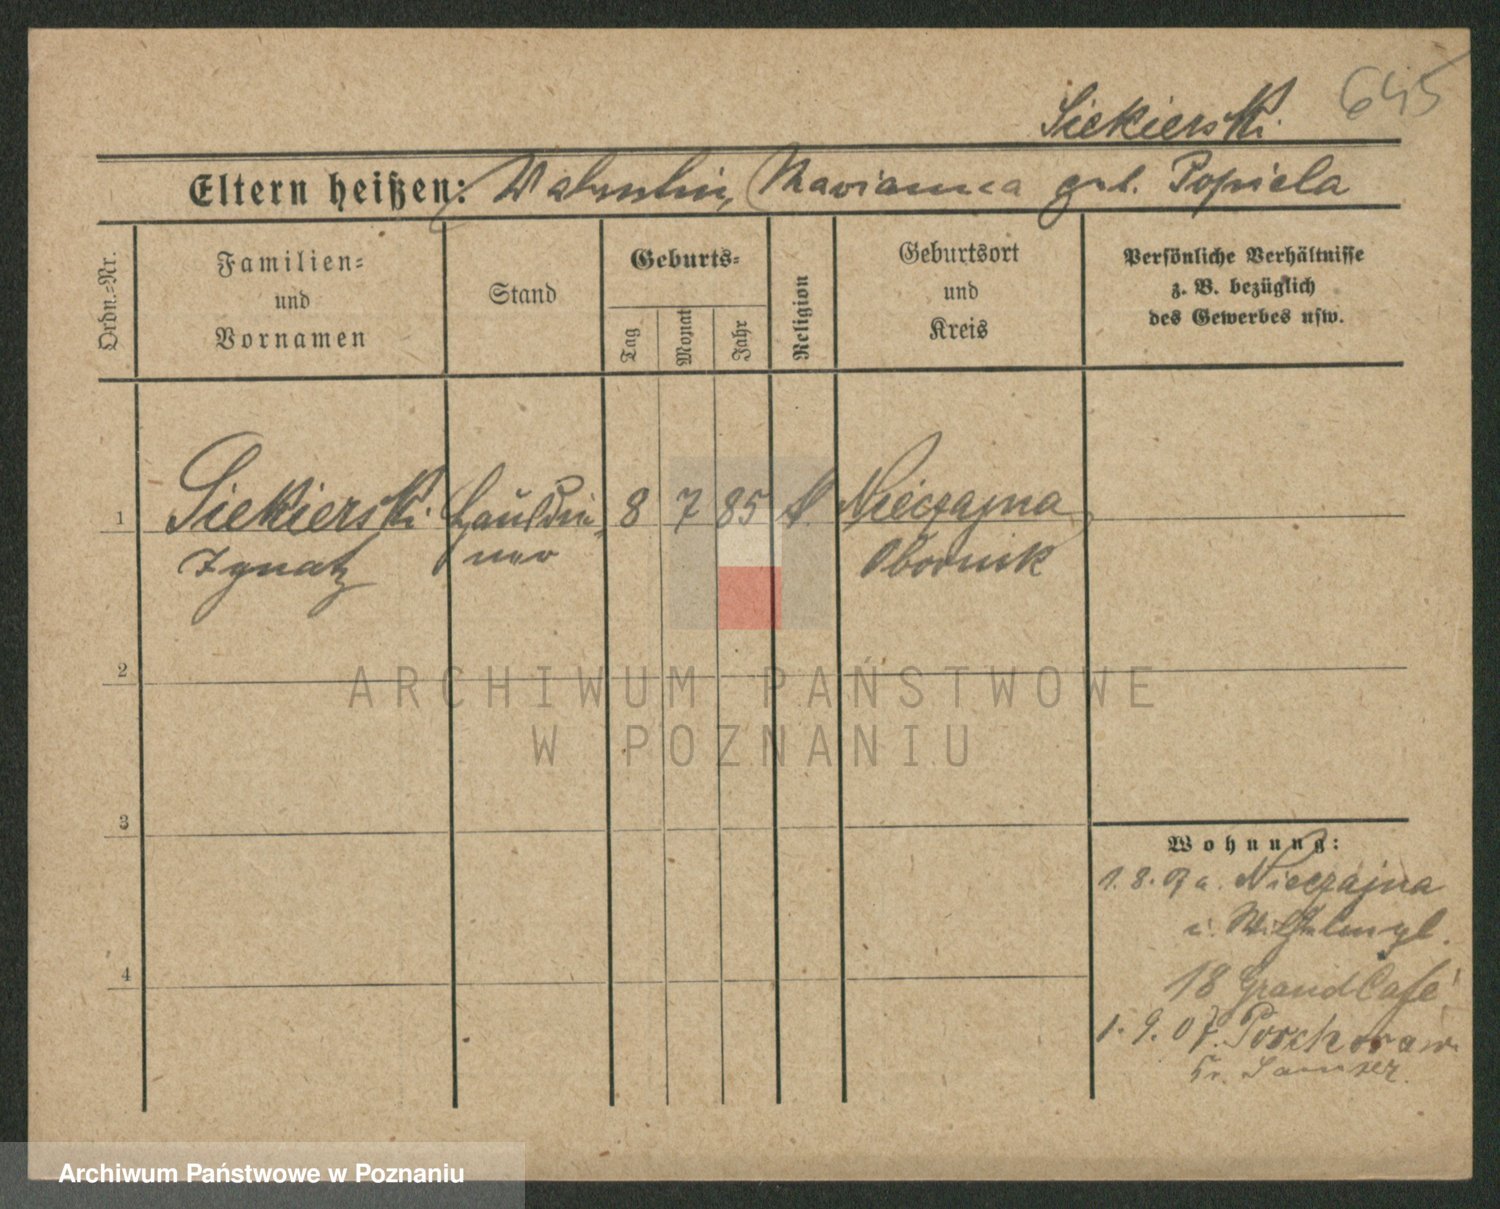 645
Siekierski.
Eltern heißen: Valentin, Marianna geb. Popiela
Ordn.=Nr.
Familien=
und
Vornamen
Stand
Geburts=
Tag
Monat
Jahr
Religion
Geburtsort
und
Kreis
Persönliche Verhältnisse
z. B. bezüglich
des Gewerbes usw.
1
Siekierski
Ignatz
8
7
85
k.
Nieczajna
Obornik
2
3
4
Wohnung:
1. 8. 07 a. Nieczajna
18 Grand Café
1. 9. 07.
Kr. Samter.
ARCHIWUM PAŃSTWOWE
W POZNANIU
Archiwum Państwowe w Poznaniu